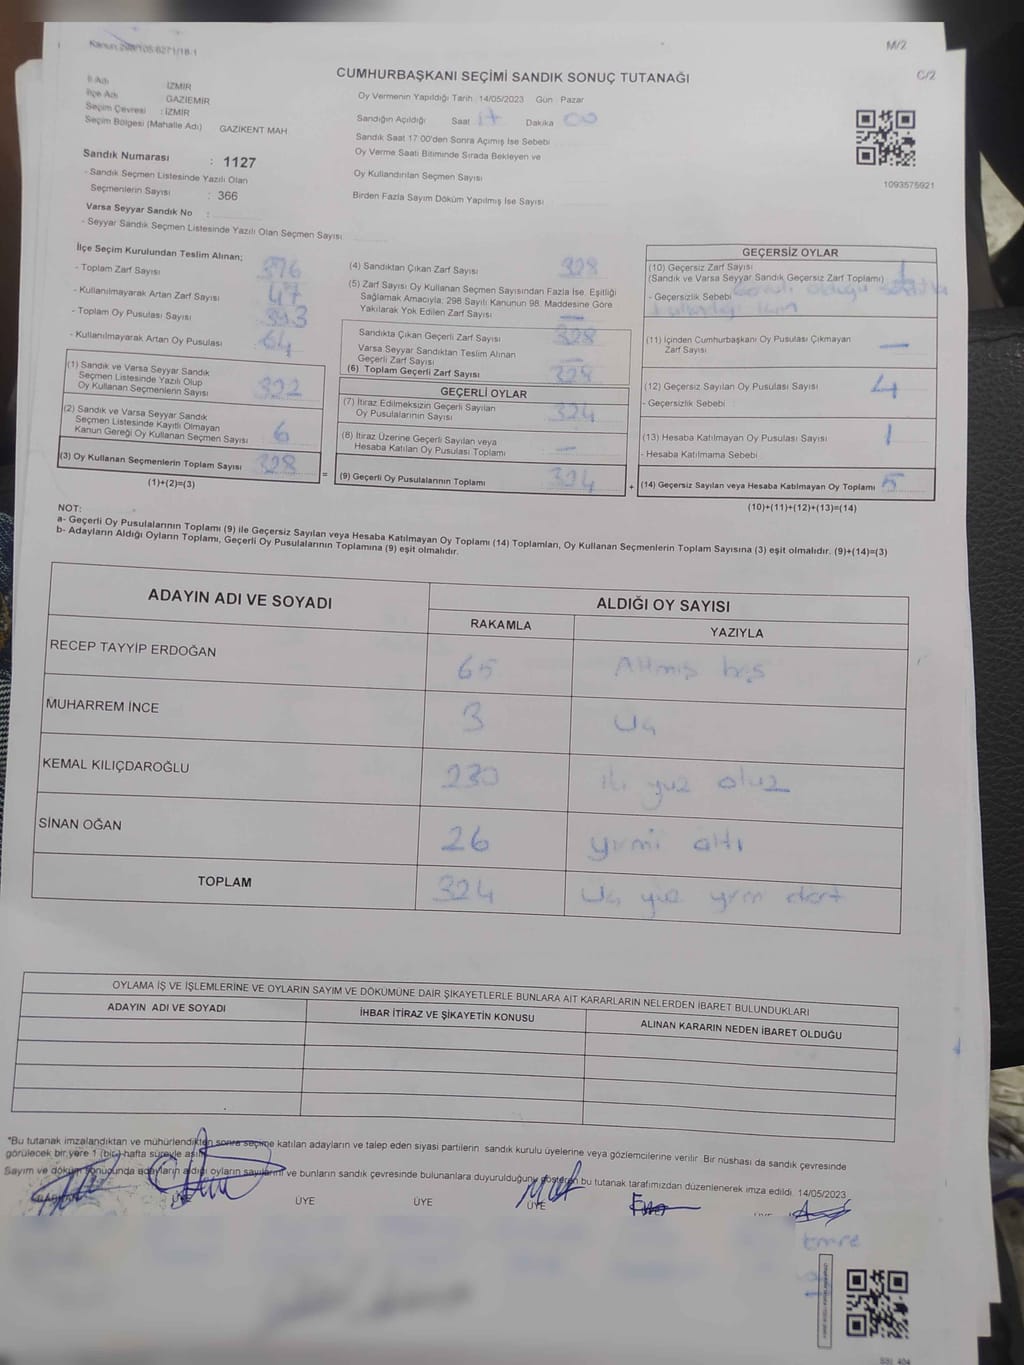 Kanun:298/105/6271/18-1
M/2
C/2
CUMHURBAŞKANI SEÇİMİ SANDIK SONUÇ TUTANAĞI
İl Adı İZMİR
İlçe Adı GAZİEMİR
Seçim Çevresi : İZMİR
Seçim Bölgesi (Mahalle Adı) GAZİKENT MAH
Sandık Numarası : 1127
- Sandık Seçmen Listesinde Yazılı Olan
Seçmenlerin Sayısı : 366
Varsa Seyyar Sandık No :
- Seyyar Sandık Seçmen Listesinde Yazılı Olan Seçmen Sayısı
Oy Vermenin Yapıldığı Tarih : 14/05/2023 Gün : Pazar
Sandığın Açıldığı Saat 17 Dakika 00
Sandık Saat 17:00'den Sonra Açımış İse Sebebi
Oy Verme Saati Bitiminde Sırada Bekleyen ve
Oy Kullandırılan Seçmen Sayısı
Birden Fazla Sayım Döküm Yapılmış İse Sayısı
1093575921
İlçe Seçim Kurulundan Teslim Alınan;
- Toplam Zarf Sayısı 376
- Kullanılmayarak Artan Zarf Sayısı 47
- Toplam Oy Pusulası Sayısı 393
- Kullanılmayarak Artan Oy Pusulası 64
(1) Sandık ve Varsa Seyyar Sandık
Seçmen Listesinde Yazılı Olup
Oy Kullanan Seçmenlerin Sayısı 322
(2) Sandık ve Varsa Seyyar Sandık
Seçmen Listesinde Kayıtlı Olmayan
Kanun Gereği Oy Kullanan Seçmen Sayısı 6
(3) Oy Kullanan Seçmenlerin Toplam Sayısı 328
(1)+(2)=(3)
(4) Sandıktan Çıkan Zarf Sayısı 328
(5) Zarf Sayısı Oy Kullanan Seçmen Sayısından Fazla İse, Eşitliği
Sağlamak Amacıyla; 298 Sayılı Kanunun 98. Maddesine Göre
Yakılarak Yok Edilen Zarf Sayısı —
Sandıkta Çıkan Geçerli Zarf Sayısı 328
Varsa Seyyar Sandıktan Teslim Alınan
Geçerli Zarf Sayısı —
(6) Toplam Geçerli Zarf Sayısı 328
GEÇERLİ OYLAR
(7) İtiraz Edilmeksizin Geçerli Sayılan
Oy Pusulalarının Sayısı 324
(8) İtiraz Üzerine Geçerli Sayılan veya
Hesaba Katılan Oy Pusulası Toplamı —
= (9) Geçerli Oy Pusulalarının Toplamı 324
GEÇERSİZ OYLAR
(10) Geçersiz Zarf Sayısı
(Sandık ve Varsa Seyyar Sandık Geçersiz Zarf Toplamı)
- Geçersizlik Sebebi olduğu
için
(11) İçinden Cumhurbaşkanı Oy Pusulası Çıkmayan
Zarf Sayısı —
(12) Geçersiz Sayılan Oy Pusulası Sayısı 4
- Geçersizlik Sebebi
(13) Hesaba Katılmayan Oy Pusulası Sayısı 1
- Hesaba Katılmama Sebebi
+ (14) Geçersiz Sayılan veya Hesaba Katılmayan Oy Toplamı 5
(10)+(11)+(12)+(13)=(14)
NOT:
a- Geçerli Oy Pusulalarının Toplamı (9) ile Geçersiz Sayılan veya Hesaba Katılmayan Oy Toplamı (14) Toplamları, Oy Kullanan Seçmenlerin Toplam Sayısına (3) eşit olmalıdır. (9)+(14)=(3)
b- Adayların Aldığı Oyların Toplamı, Geçerli Oy Pusulalarının Toplamına (9) eşit olmalıdır.
ADAYIN ADI VE SOYADI ALDIĞI OY SAYISI
RAKAMLA YAZIYLA
RECEP TAYYİP ERDOĞAN 65 Altmış beş
MUHARREM İNCE 3 Üç
KEMAL KILIÇDAROĞLU 230 iki yüz otuz
SİNAN OĞAN 26 yirmi altı
TOPLAM 324 Üç yüz yirmi dört
OYLAMA İŞ VE İŞLEMLERİNE VE OYLARIN SAYIM VE DÖKÜMÜNE DAİR ŞİKAYETLERLE BUNLARA AİT KARARLARIN NELERDEN İBARET BULUNDUKLARI
ADAYIN ADI VE SOYADI İHBAR İTİRAZ VE ŞİKAYETİN KONUSU ALINAN KARARIN NEDEN İBARET OLDUĞU
"Bu tutanak imzalandıktan ve mühürlendikten sonra seçime katılan adayların ve talep eden siyasi partilerin sandık kurulu üyelerine veya gözlemcilerine verilir. Bir nüshası da sandık çevresinde
görülecek bir yere 1 (bir) hafta süreyle asılır.
Sayım ve döküm sonucunda adayların aldığı oyların sayılarını ve bunların sandık çevresinde bulunanlara duyurulduğunu gösteren bu tutanak tarafımızdan düzenlenerek imza edildi. 14/05/2023
BAŞKAN ÜYE ÜYE ÜYE ÜYE
Emre